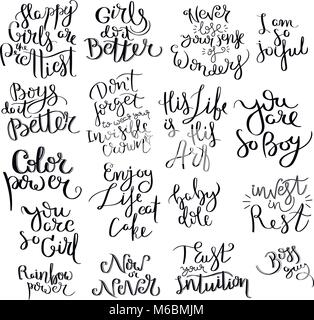 Happy
Girls are
the
Prettiest
Girls
do it
Better
Never
lose
your sense
of
Wonders
I am
so
Joyful
Boys
do it
Better
Don't
forget
to wear
your
Invisible
Crown
His Life
is His
Art
you
are
so Boy
Color
power
Enjoy
Life eat
Cake
baby
dole
invest
in
Rest
you
are
so Girl
Rainbow
power
Now
or
Never
Trust
your
intuition
Boss
guy
alamy
Image ID: M6BMJM
www.alamy.com